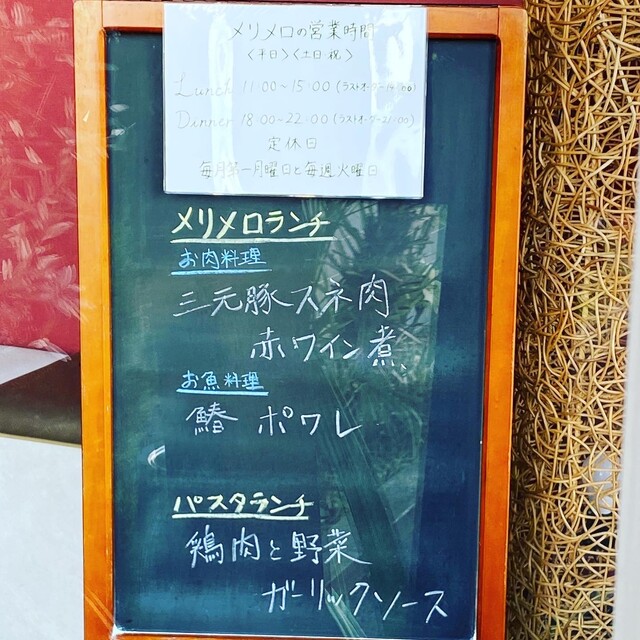 メリメロの営業時間
〈平日〉〈土日・祝〉
Lunch 11:00~15:00 (ラストオーダー14:00)
Dinner 18:00~22:00 (ラストオーダー21:00)
定休日
毎月第一月曜日と毎週火曜日
メリメロランチ
お肉料理
三元豚スネ肉
赤ワイン煮
お魚料理
鰆 ポワレ
パスタランチ
鶏肉と野菜
ガーリックソース